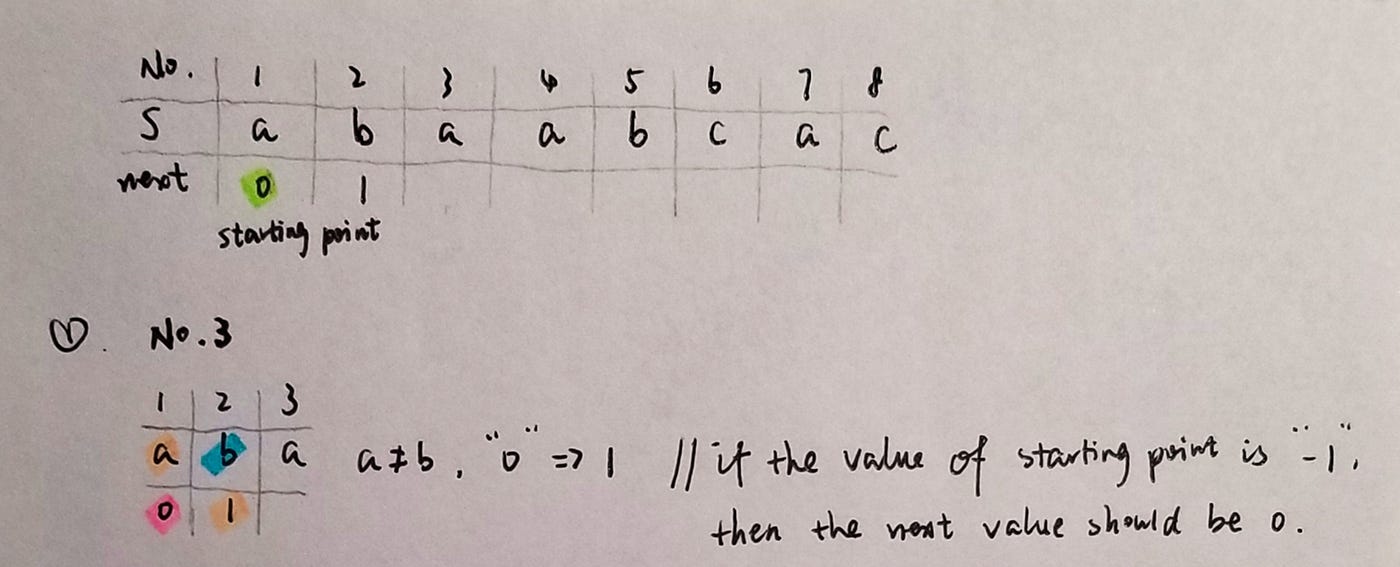 No. 1 2 3 4 5 6 7 8
S a b a a b c a c
next 0 1
starting point
①. No.3
1 2 3
a b a a≠b, "0" => 1 // if the value of starting point is "-1",
0 1 then the next value should be 0.